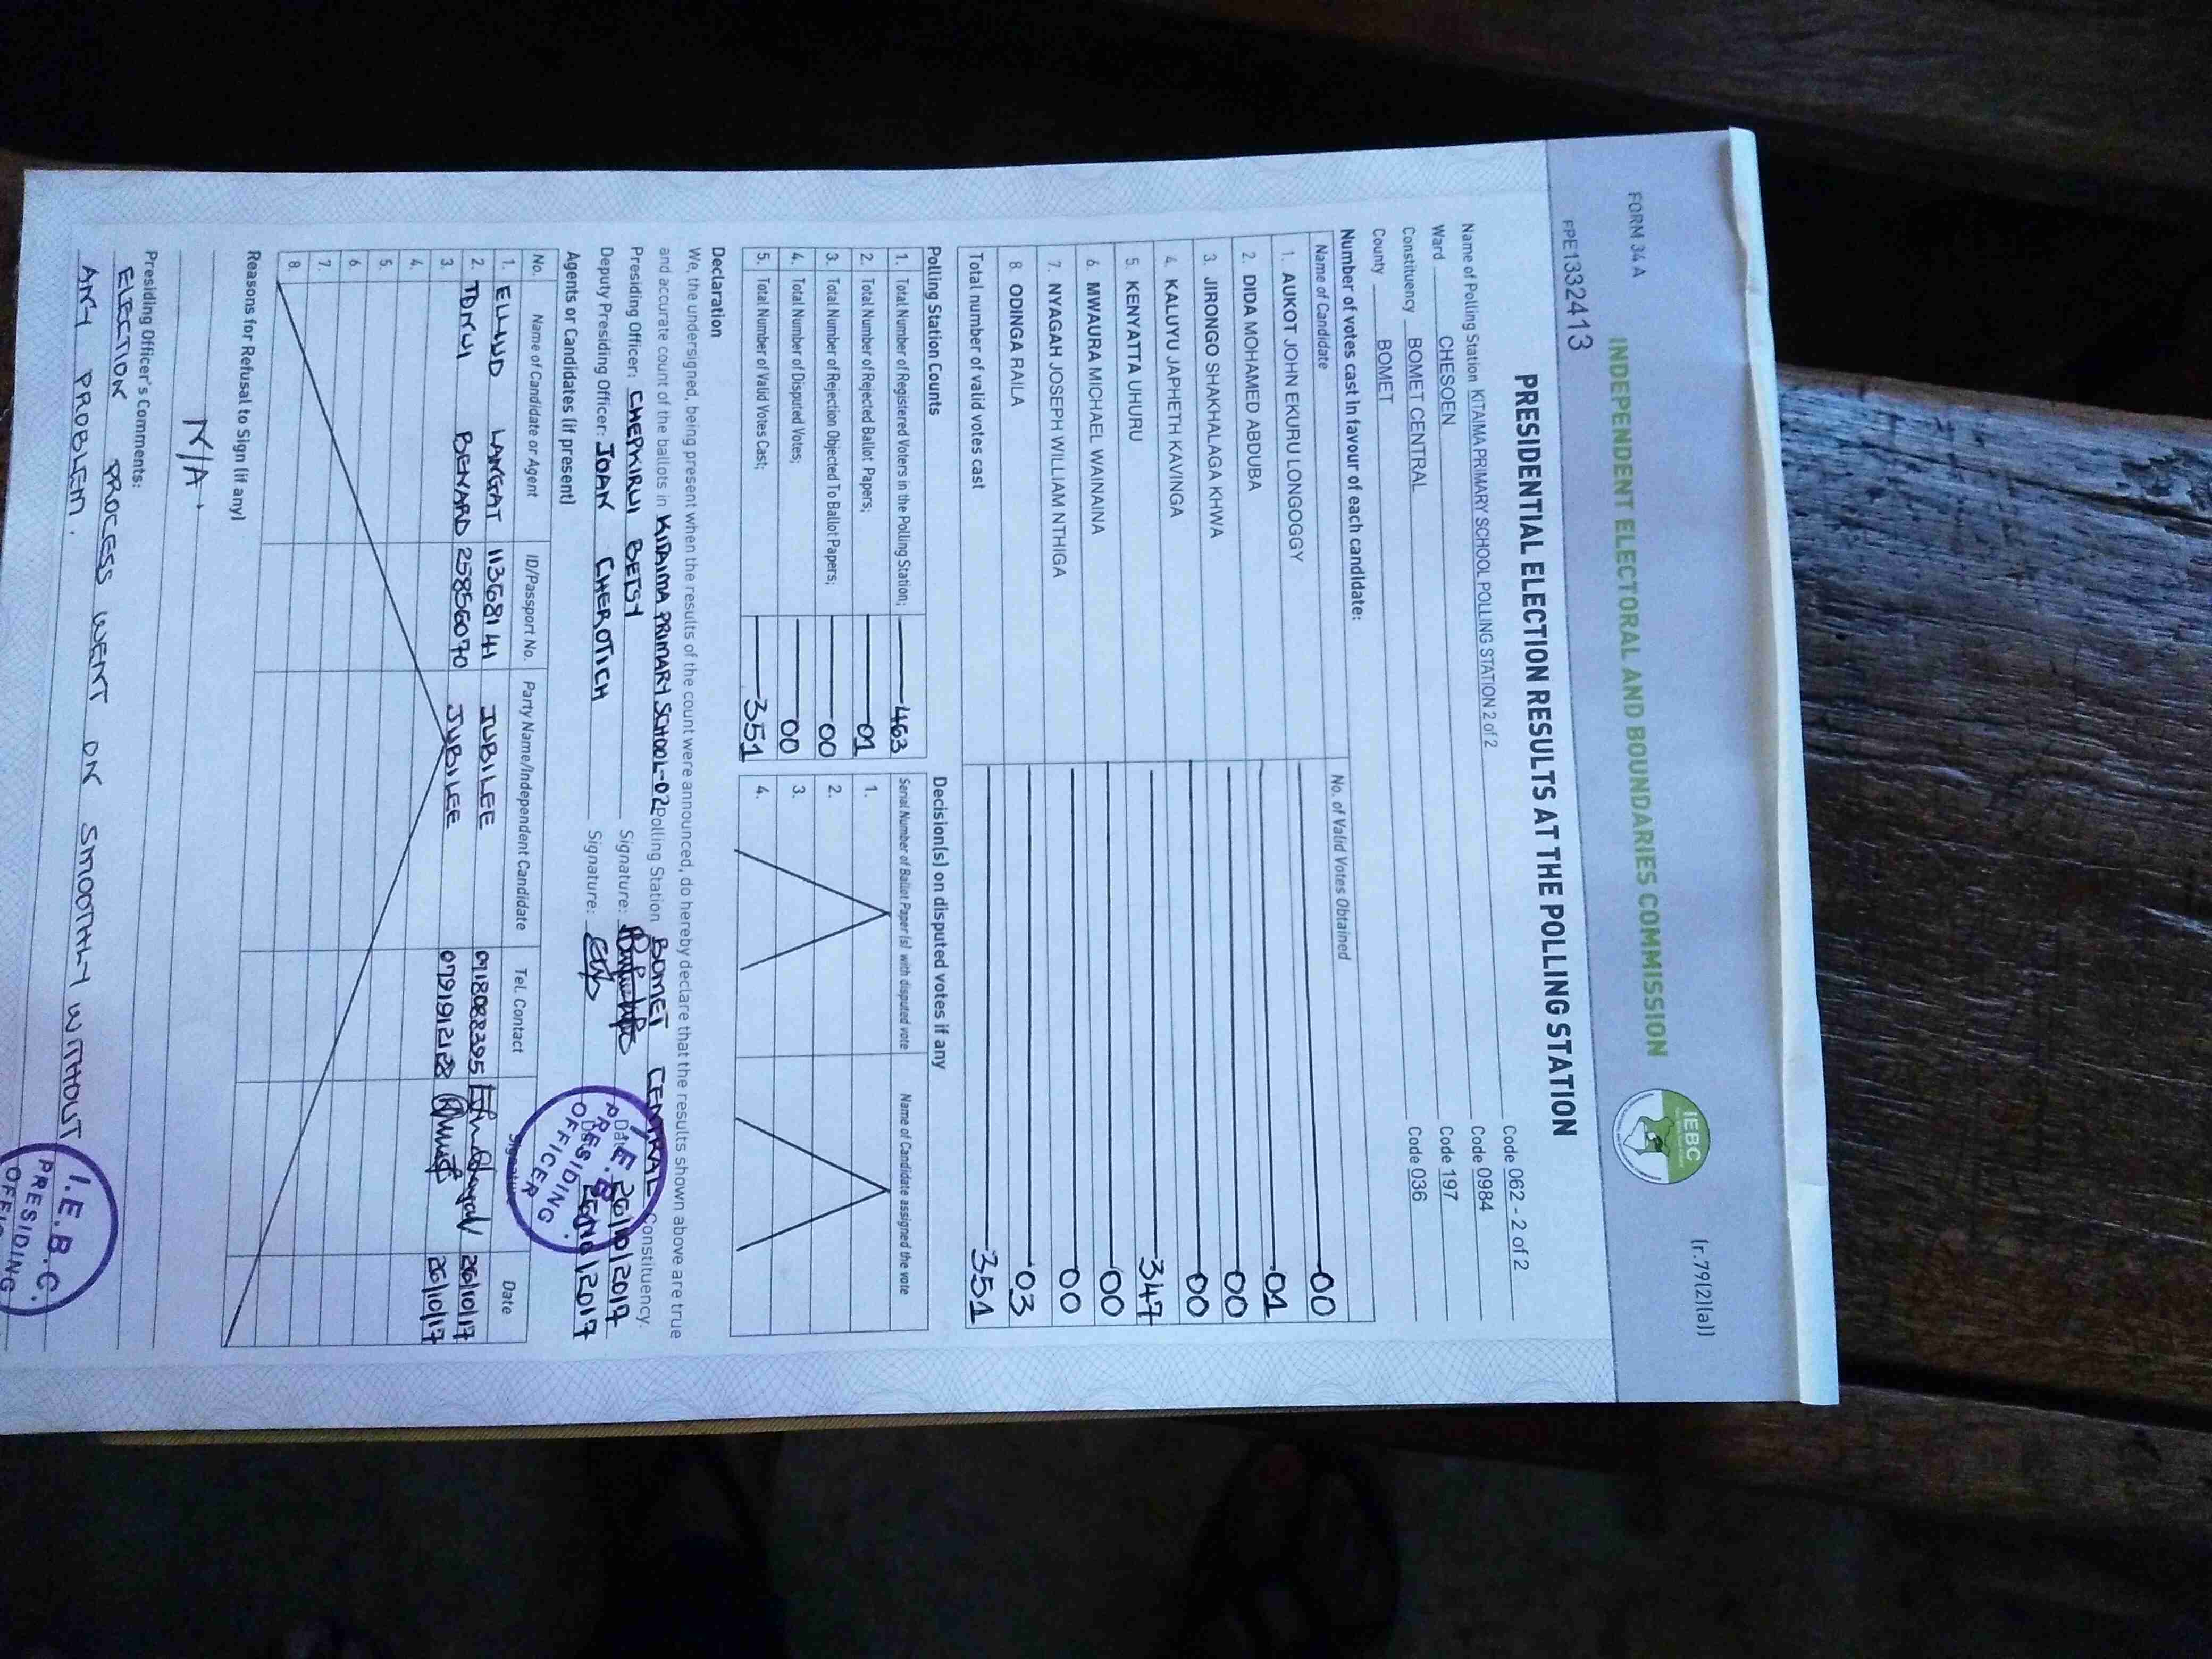 FORM 34 A
(r.79(2)(a))
INDEPENDENT ELECTORAL AND BOUNDARIES COMMISSION
IEBC
FPE1332413
PRESIDENTIAL ELECTION RESULTS AT THE POLLING STATION
Name of Polling Station KITAIMA PRIMARY SCHOOL POLLING STATION 2 of 2 Code 062 - 2 of 2
Ward CHESOEN Code 0984
Constituency BOMET CENTRAL Code 197
County BOMET Code 036
Number of votes cast in favour of each candidate:
Name of Candidate No. of Valid Votes Obtained
1. AUKOT JOHN EKURU LONGOGGY 00
2. DIDA MOHAMED ABDUBA 01
3. JIRONGO SHAKHALAGA KHWA 00
4. KALUYU JAPHETH KAVINGA 00
5. KENYATTA UHURU 347
6. MWAURA MICHAEL WAINAINA 00
7. NYAGAH JOSEPH WILLIAM NTHIGA 00
8. ODINGA RAILA 03
Total number of valid votes cast 351
Polling Station Counts Decision(s) on disputed votes if any
1. Total Number of Registered Voters in the Polling Station; 463 Serial Number of Ballot Paper (s) with disputed vote Name of Candidate assigned the vote
2. Total Number of Rejected Ballot Papers; 01 1.
3. Total Number of Rejection Objected To Ballot Papers; 00 2.
4. Total Number of Disputed Votes; 00 3.
5. Total Number of Valid Votes Cast; 351 4.
Declaration
We, the undersigned, being present when the results of the count were announced, do hereby declare that the results shown above are true
and accurate count of the ballots in KITAIMA PRIMARY SCHOOL-02 Polling Station BOMET CENTRAL Constituency.
Presiding Officer: CHEPKIRUI BETSY Signature: Date: 26/10/2017
Deputy Presiding Officer: JOAN CHEROTICH Signature: Date: 26/10/2017
PRESIDING OFFICER
Agents or Candidates (if present)
No. Name of Candidate or Agent ID/Passport No. Party Name/Independent Candidate Tel. Contact Signature Date
1. ELIUD LANGAT 113681 41 JUBILEE 26/10/17
2. BENARD 25856070 JUBILEE 26/10/17
3.
4.
5.
6.
7.
8.
Reasons for Refusal to Sign (if any)
N/A.
Presiding Officer's Comments:
ELECTION PROCESS WENT ON SMOOTHLY WITHOUT
ANY PROBLEM.
I.E.B.C.
PRESIDING